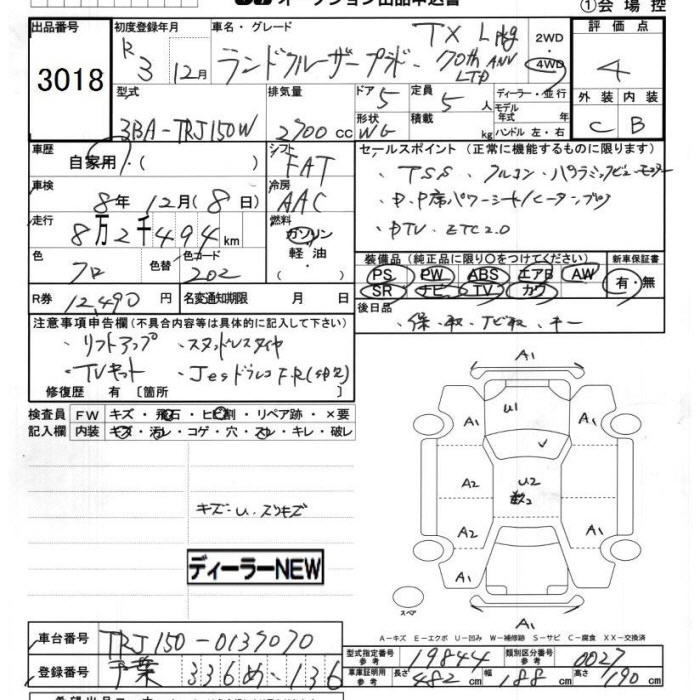 オークション出品申込書
①会場控
出品番号
3018
初度登録年月
R3 12月
車名・グレード
ランドクルーザープラド
TX Lpkg
70th ANV
LTD
2WD
4WD
評価点
4
外装 内装
C B
型式
3BA-TRJ150W
排気量
2700 cc
ドア 5
形状 WG
定員 5 人
積載 kg
ディーラー・並行
モデル
年式 年
ハンドル 左・右
車歴
自家用・( )
シフト
FAT
車検
8年 12月(8日)
冷房
AAC
走行
8万2千494km
燃料
ガソリン
軽油
色
クロ
色替
色カード
202
R券 12,490円
名変通知期限 月 日
セールスポイント(正常に機能するものに限ります)
・TSS ・クルコン ・パノラミックビューモニター
・D.P席パワーシート/ヒータ
・DTV ・ETC2.0
装備品(純正品に限り○をつけてください)
PS PW ABS エアB AW
SR ナビ TV カワ
新車保証書
有・無
後日品
・保・取・ナビ取・キー
注意事項申告欄(不具合内容等は具体的に記入して下さい)
・リフトアップ ・スタッドレスタイヤ
・TVキット ・Jesドラレコ F.R
修復歴 有 〔箇所 〕
検査員 FW キズ・飛石・ヒビ割・リペア跡・×要
記入欄 内装 キズ・汚レ・コゲ・穴・スレ・キレ・破レ
キズ・U・スリキズ
ディーラーNEW
A1
U1
A1 A1
A2 U2 A1
A2 A1
A1 A1
A1
スペア
A-キズ E-エクボ U-凹み W-補修跡 S-サビ C-腐食 XX-交換済
車台番号 TRJ150-0139070
登録番号 千葉 336 め・136
型式指定番号 参考 19844
類別区分番号 参考 0027
車庫証明用 参考 長さ 482cm 幅 188cm 高さ 190cm